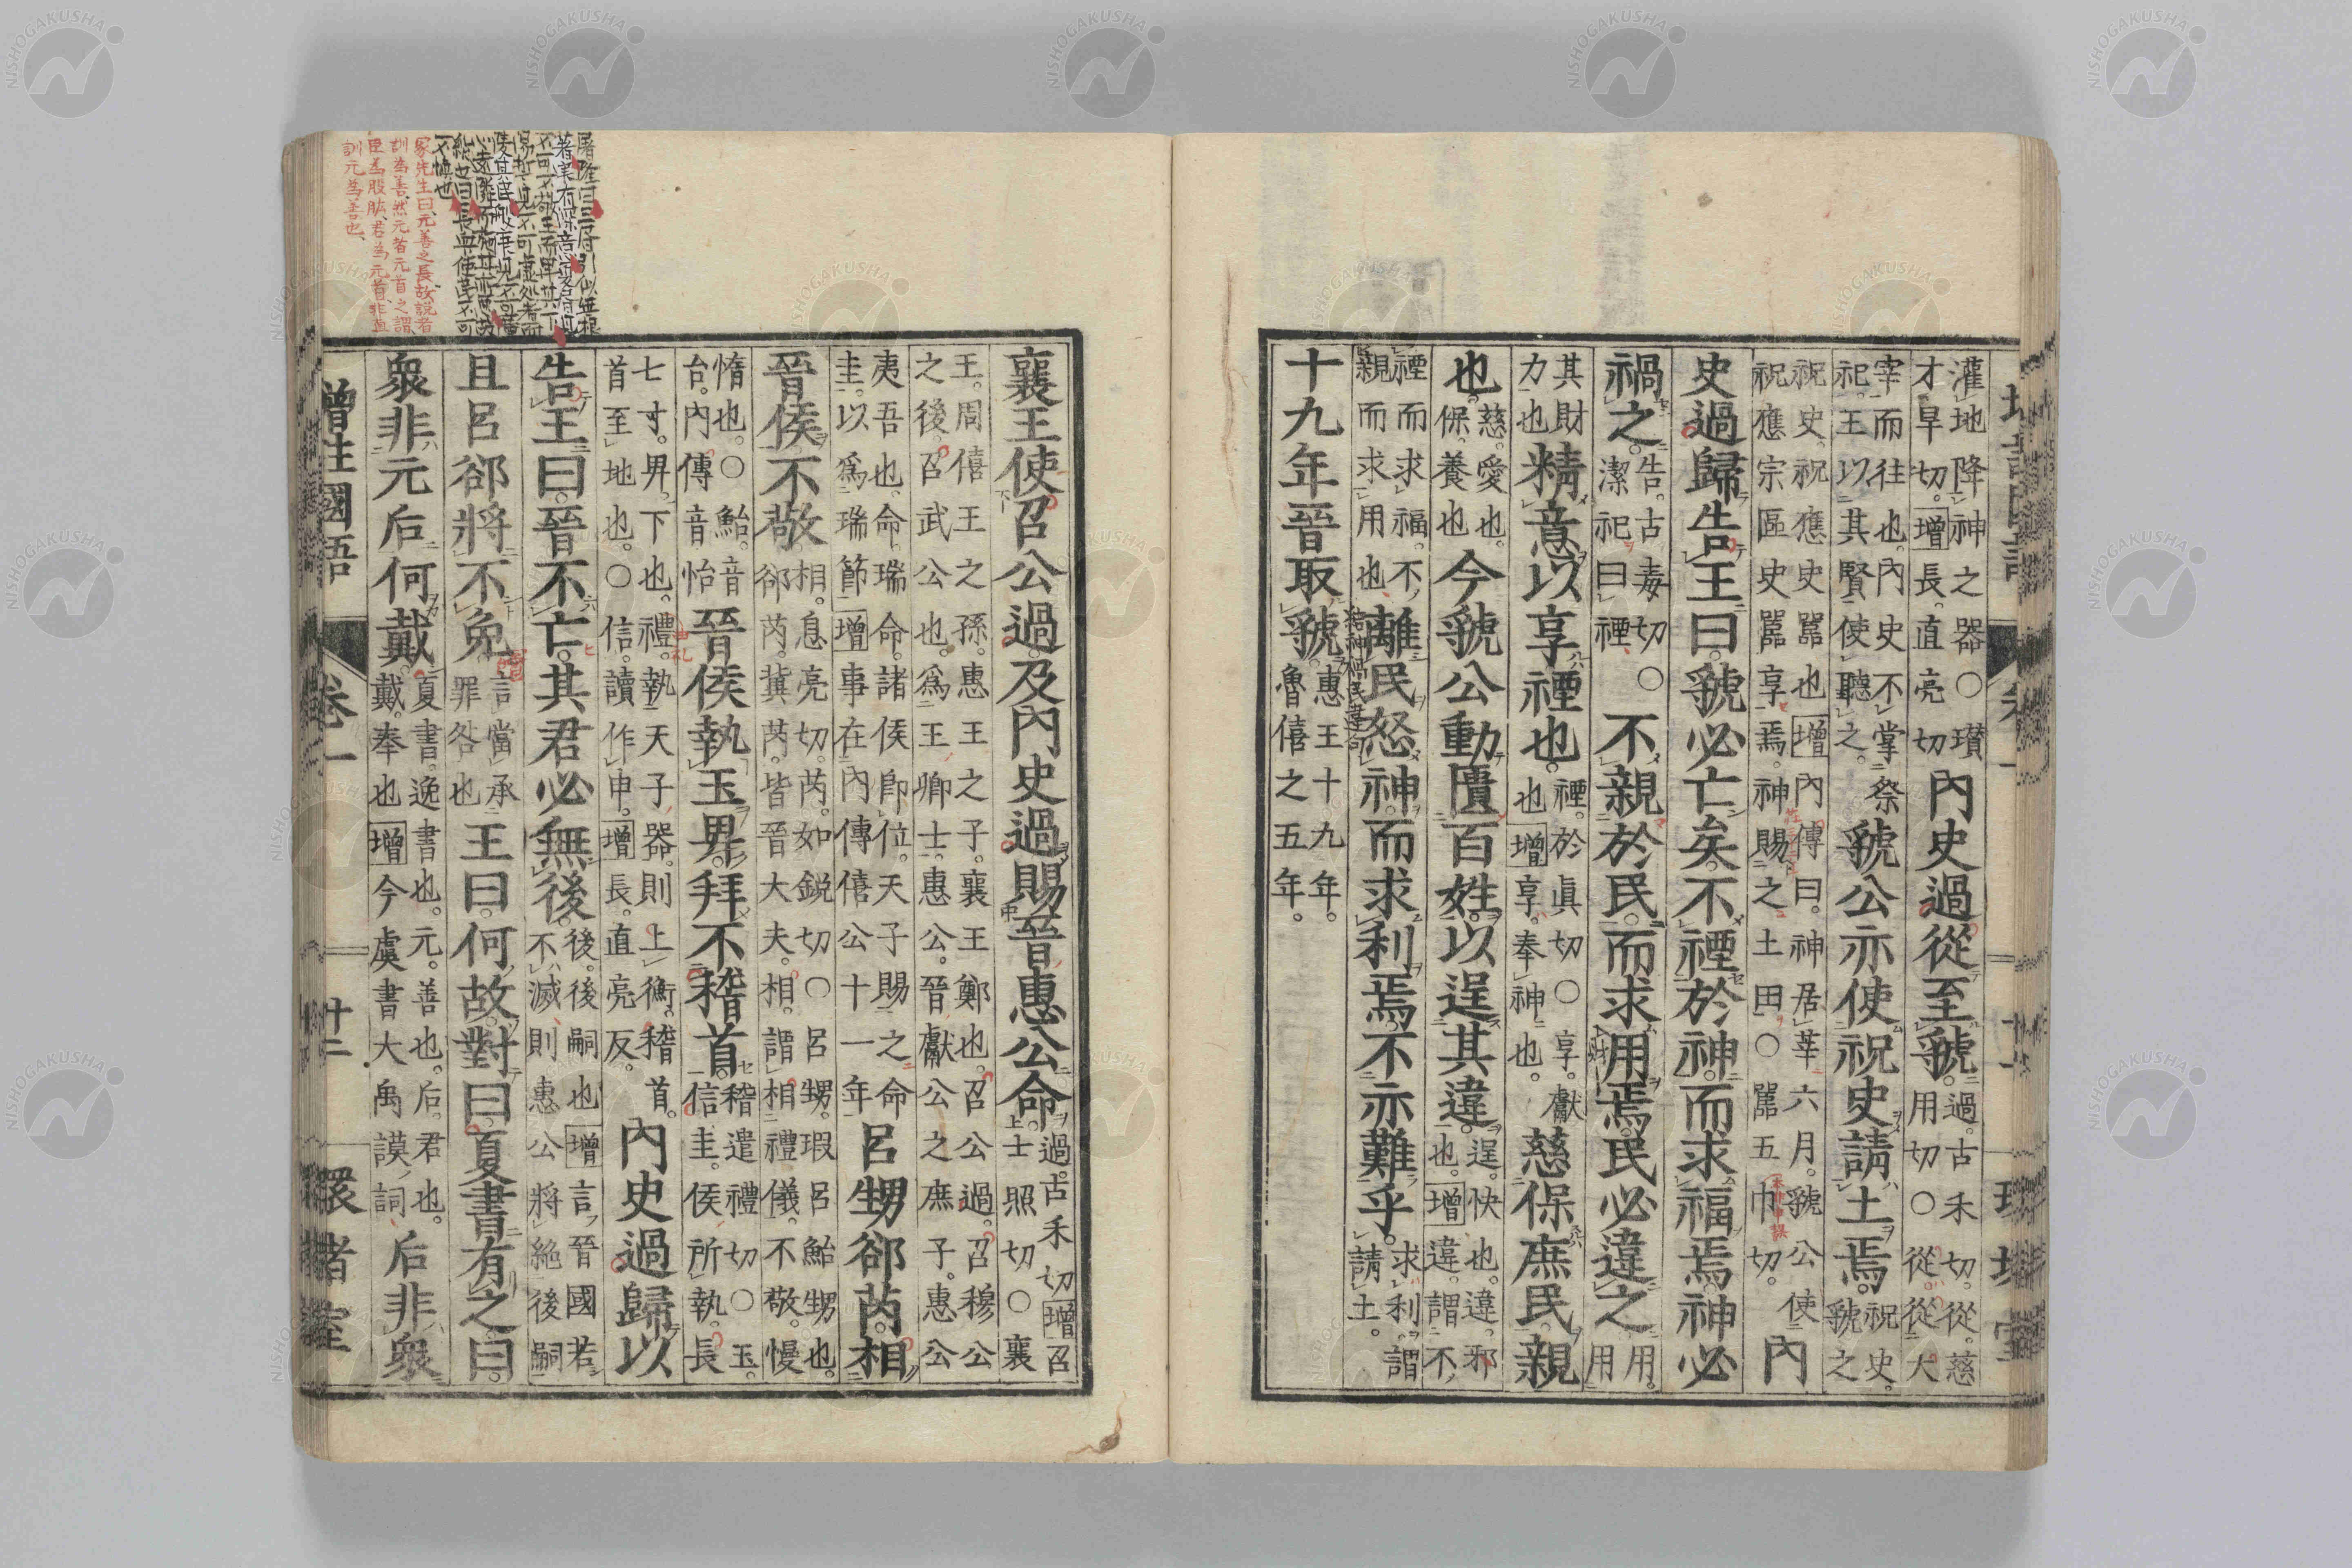 灌地降神之器○瓚才旱切。增長。直亮切內史過從至虢。過。古禾切。從。慈用切○從。從大
宰而往也。內史不掌祭祀。王以其賢使聽之。虢公亦使祝史請土焉。祝史。虢之
祝史。祝應史嚚也增內傳曰。神居莘六月。虢公使祝應宗區史嚚享焉。神賜之土田○嚚五巾切。內
史過歸告王曰。虢必亡矣。不禋於神。而求福焉。神必
禍之。告。古毒切○潔祀曰禋不親於民。而求用焉。民必違之用。用
其財力也精意以享禋也。禋。於眞切○享。獻也增享。奉神也。慈保庶民。親
也。慈。愛也。保。養也今虢公動匱百姓。以逞其違。逞。快也。違。邪也。增違。謂不
禋而求福。不親而求用也離民怒神。而求利焉。不亦難乎。求利。謂請土。
十九年晉取虢。惠王十九年。魯僖之五年。
襄王使召公過及內史過賜晉惠公命過。古禾切增召士照切○襄
王。周僖王之孫。惠王之子。襄王鄭也。召公過。召穆公之後。召武公也。爲王卿士。惠公。晉獻公之庶子。惠公
夷吾也。命。瑞命。諸侯卽位。天子賜之命圭。以爲瑞節增事在內傳僖公十一年呂甥郤芮。相
晉侯不敬相。息亮切。芮。如銳切○呂甥。瑕呂飴甥也。郤芮。冀芮。皆晉大夫。相。謂相禮儀。不敬。慢
惰也。○鮐。音台。內傳音怡晉侯執玉卑。拜不稽首。稽遣禮切○玉。信圭。侯所執。長
七寸。卑。下也。禮。執天子器。則上衡。稽首。首至地也。○信。讀作申。增長。直亮反。內史過歸以
告王曰。晉不亡。其君必無後。後。後嗣也增言。晉國若不滅則惠公將絕後嗣
且呂郤將不免言當承罪咎也王曰。何故。對曰。夏書有之。曰。
衆非元后何戴。夏書。逸書也。元。善也。后。君也。戴。奉也增今虞書大禹謨。詞后非衆
增註國語 卷一 十二 環堵室